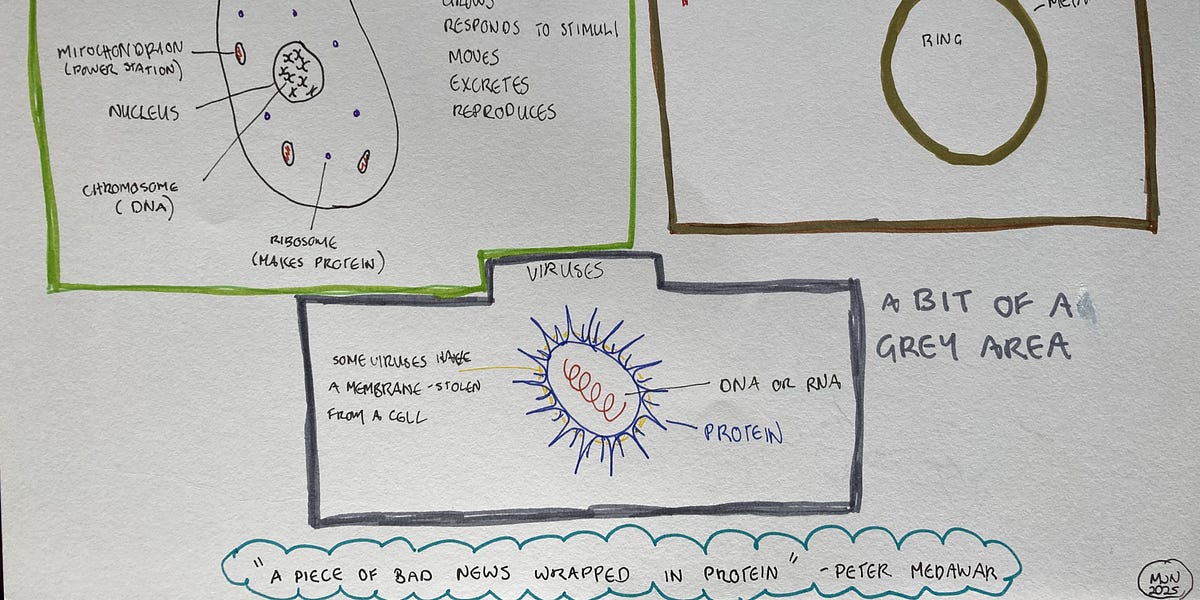 RESPONDS TO STIMULI
MOVES
EXCRETES
REPRODUCES
MITOCHONDRION
(POWER STATION)
NUCLEUS
CHROMOSOME
(DNA)
RIBOSOME
(MAKES PROTEIN)
RING
VIRUSES
SOME VIRUSES HAVE
A MEMBRANE - STOLEN
FROM A CELL
DNA OR RNA
PROTEIN
A BIT OF A
GREY AREA
"A PIECE OF BAD NEWS WRAPPED IN PROTEIN" - PETER MEDAWAR
MJN
2025